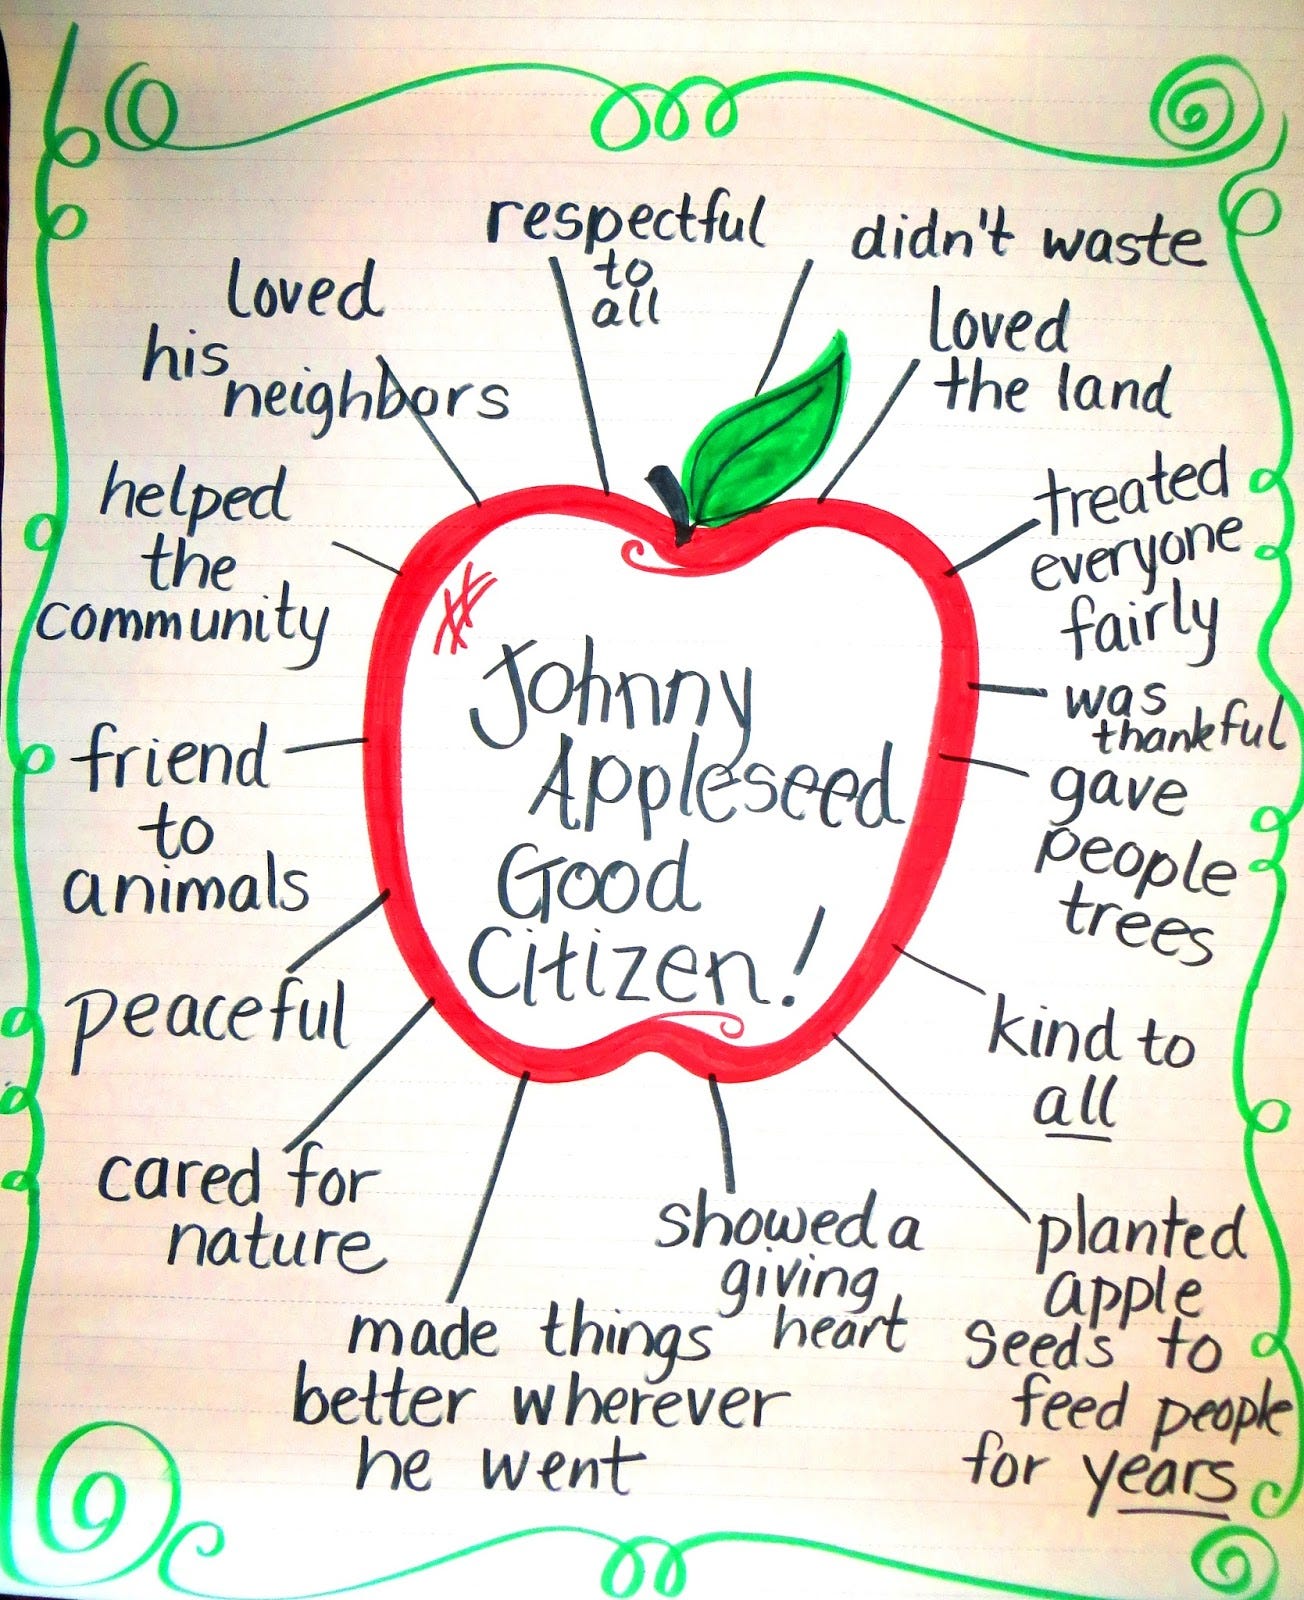 respectful
to
all
didn't waste
loved
the land
treated
everyone
fairly
was
thankful
gave
people
trees
kind to
all
planted
apple
seeds to
feed people
for years
showed a
giving
heart
made things
better wherever
he went
cared for
nature
peaceful
friend
to
animals
helped
the
community
loved
his
neighbors
Johnny
Appleseed
Good
Citizen!